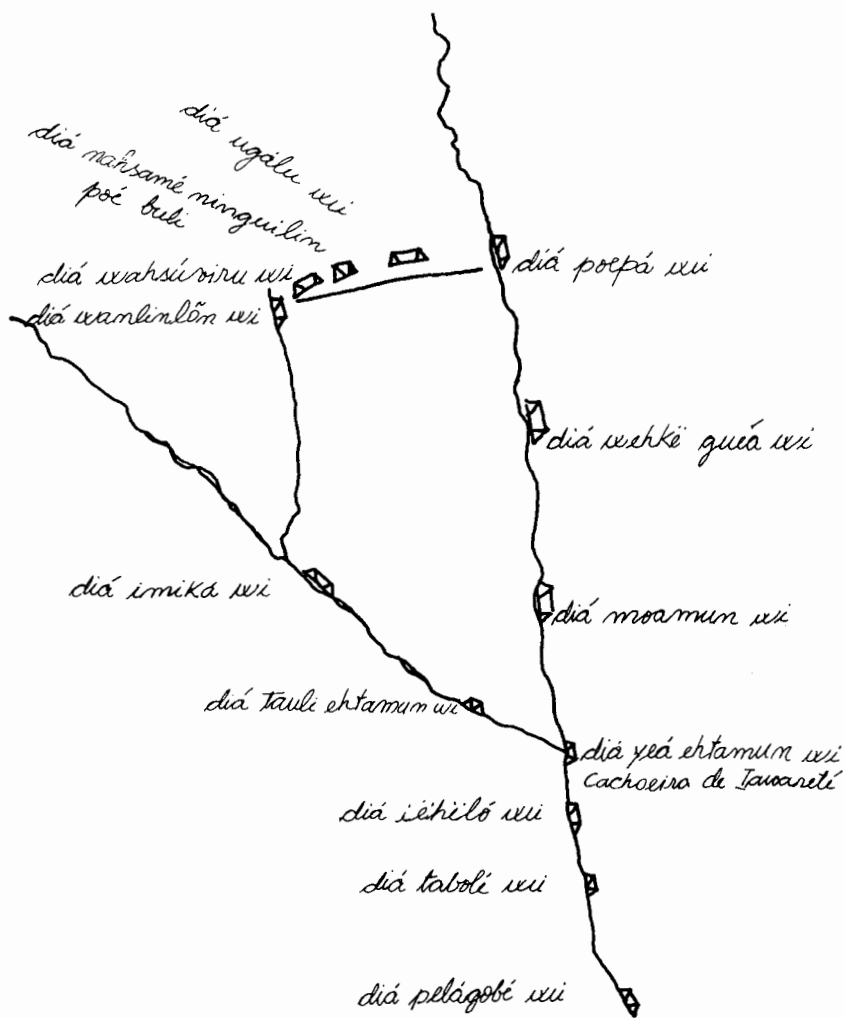 diá ugálu wi
diá nahsamé ninguilin
poé buli
diá wahsúviru wi
diá wanlinlõn wi
diá poepá wi
diá wehkë gueá wi
diá imiká wi
diá moamun wi
diá tauli ehtamun wi
diá yeá ehtamun wi
Cachoeira de Iauareté
diá iëhëló wi
diá tabolé wi
diá pelágobé wi